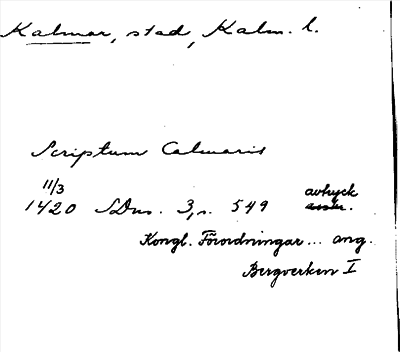 Kalmar, stad, Kalm. l.
Scriptum Calmaris
11/3
1420 SDns. 3, s. 549 avtryck
Kongl. Förordningar... ang.
Bergverken I